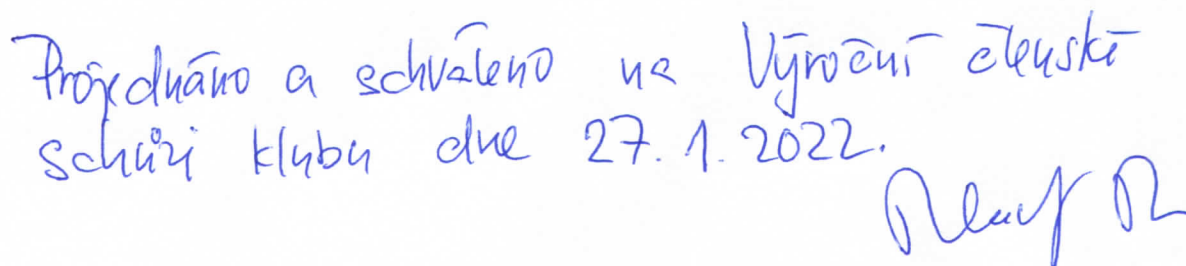 Projednáno a schváleno na Výroční členské
schůzi klubu dne 27.1.2022.